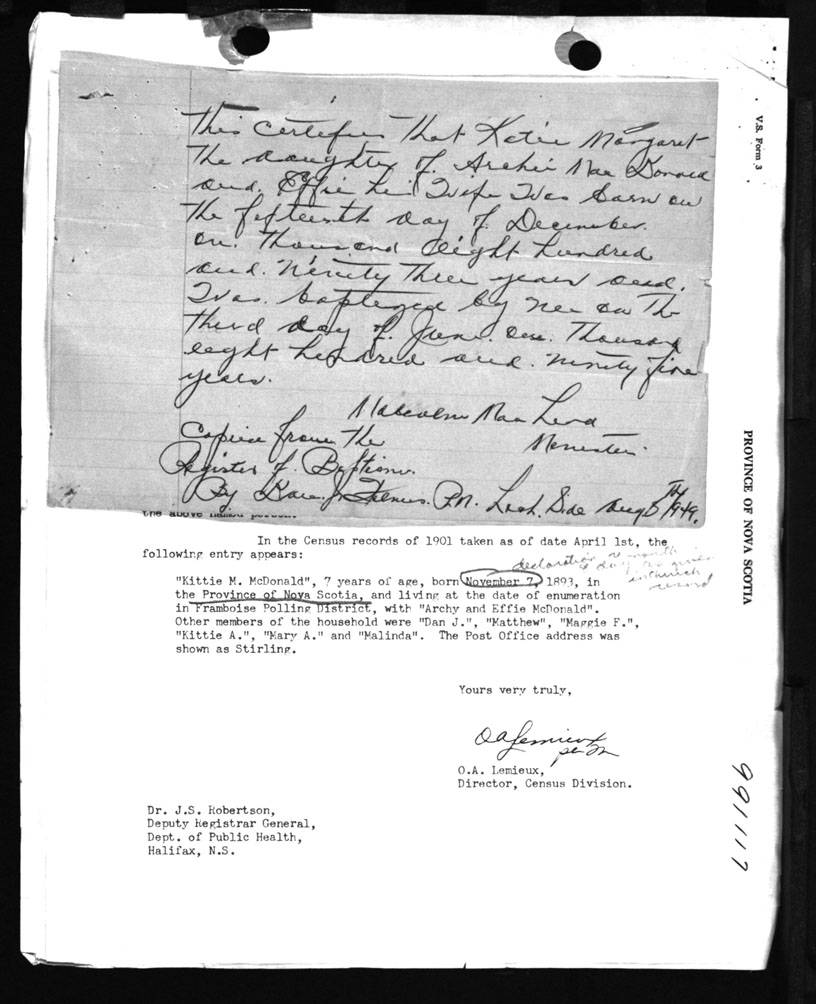 This Certifies That Katie Margaret
The daughter of Archie Mac Donald
and. Effie his Wife Was born on
the fifteenth day of December.
on. Thousand eight hundred
and. Ninity Three years and.
Was. baptized by me on The
third day of. June. one. Thousand
eight hundred and. ninity five
years.
Malcolm Mac Leod
Minister.
Copied from The
Register of. Baptism.
By P.M. Loch. Side Aug 5th 1949.
the above named person.
In the Census records of 1901 taken as of date April 1st, the
following entry appears:
declaration month
& day as given
in church
record
"Kittie M. McDonald", 7 years of age, born November 7, 1893, in
the Province of Nova Scotia, and living at the date of enumeration
in Framboise Polling District, with "Archy and Effie McDonald".
Other members of the household were "Dan J.", "Matthew", "Maggie F.",
"Kittie A.", "Mary A." and "Malinda". The Post Office address was
shown as Stirling.
Yours very truly,
OALemieux
per
O.A. Lemieux,
Director, Census Division.
Dr. J.S. Robertson,
Deputy Registrar General,
Dept. of Public Health,
Halifax, N.S.
V.S. Form 3
PROVINCE OF NOVA SCOTIA
991117